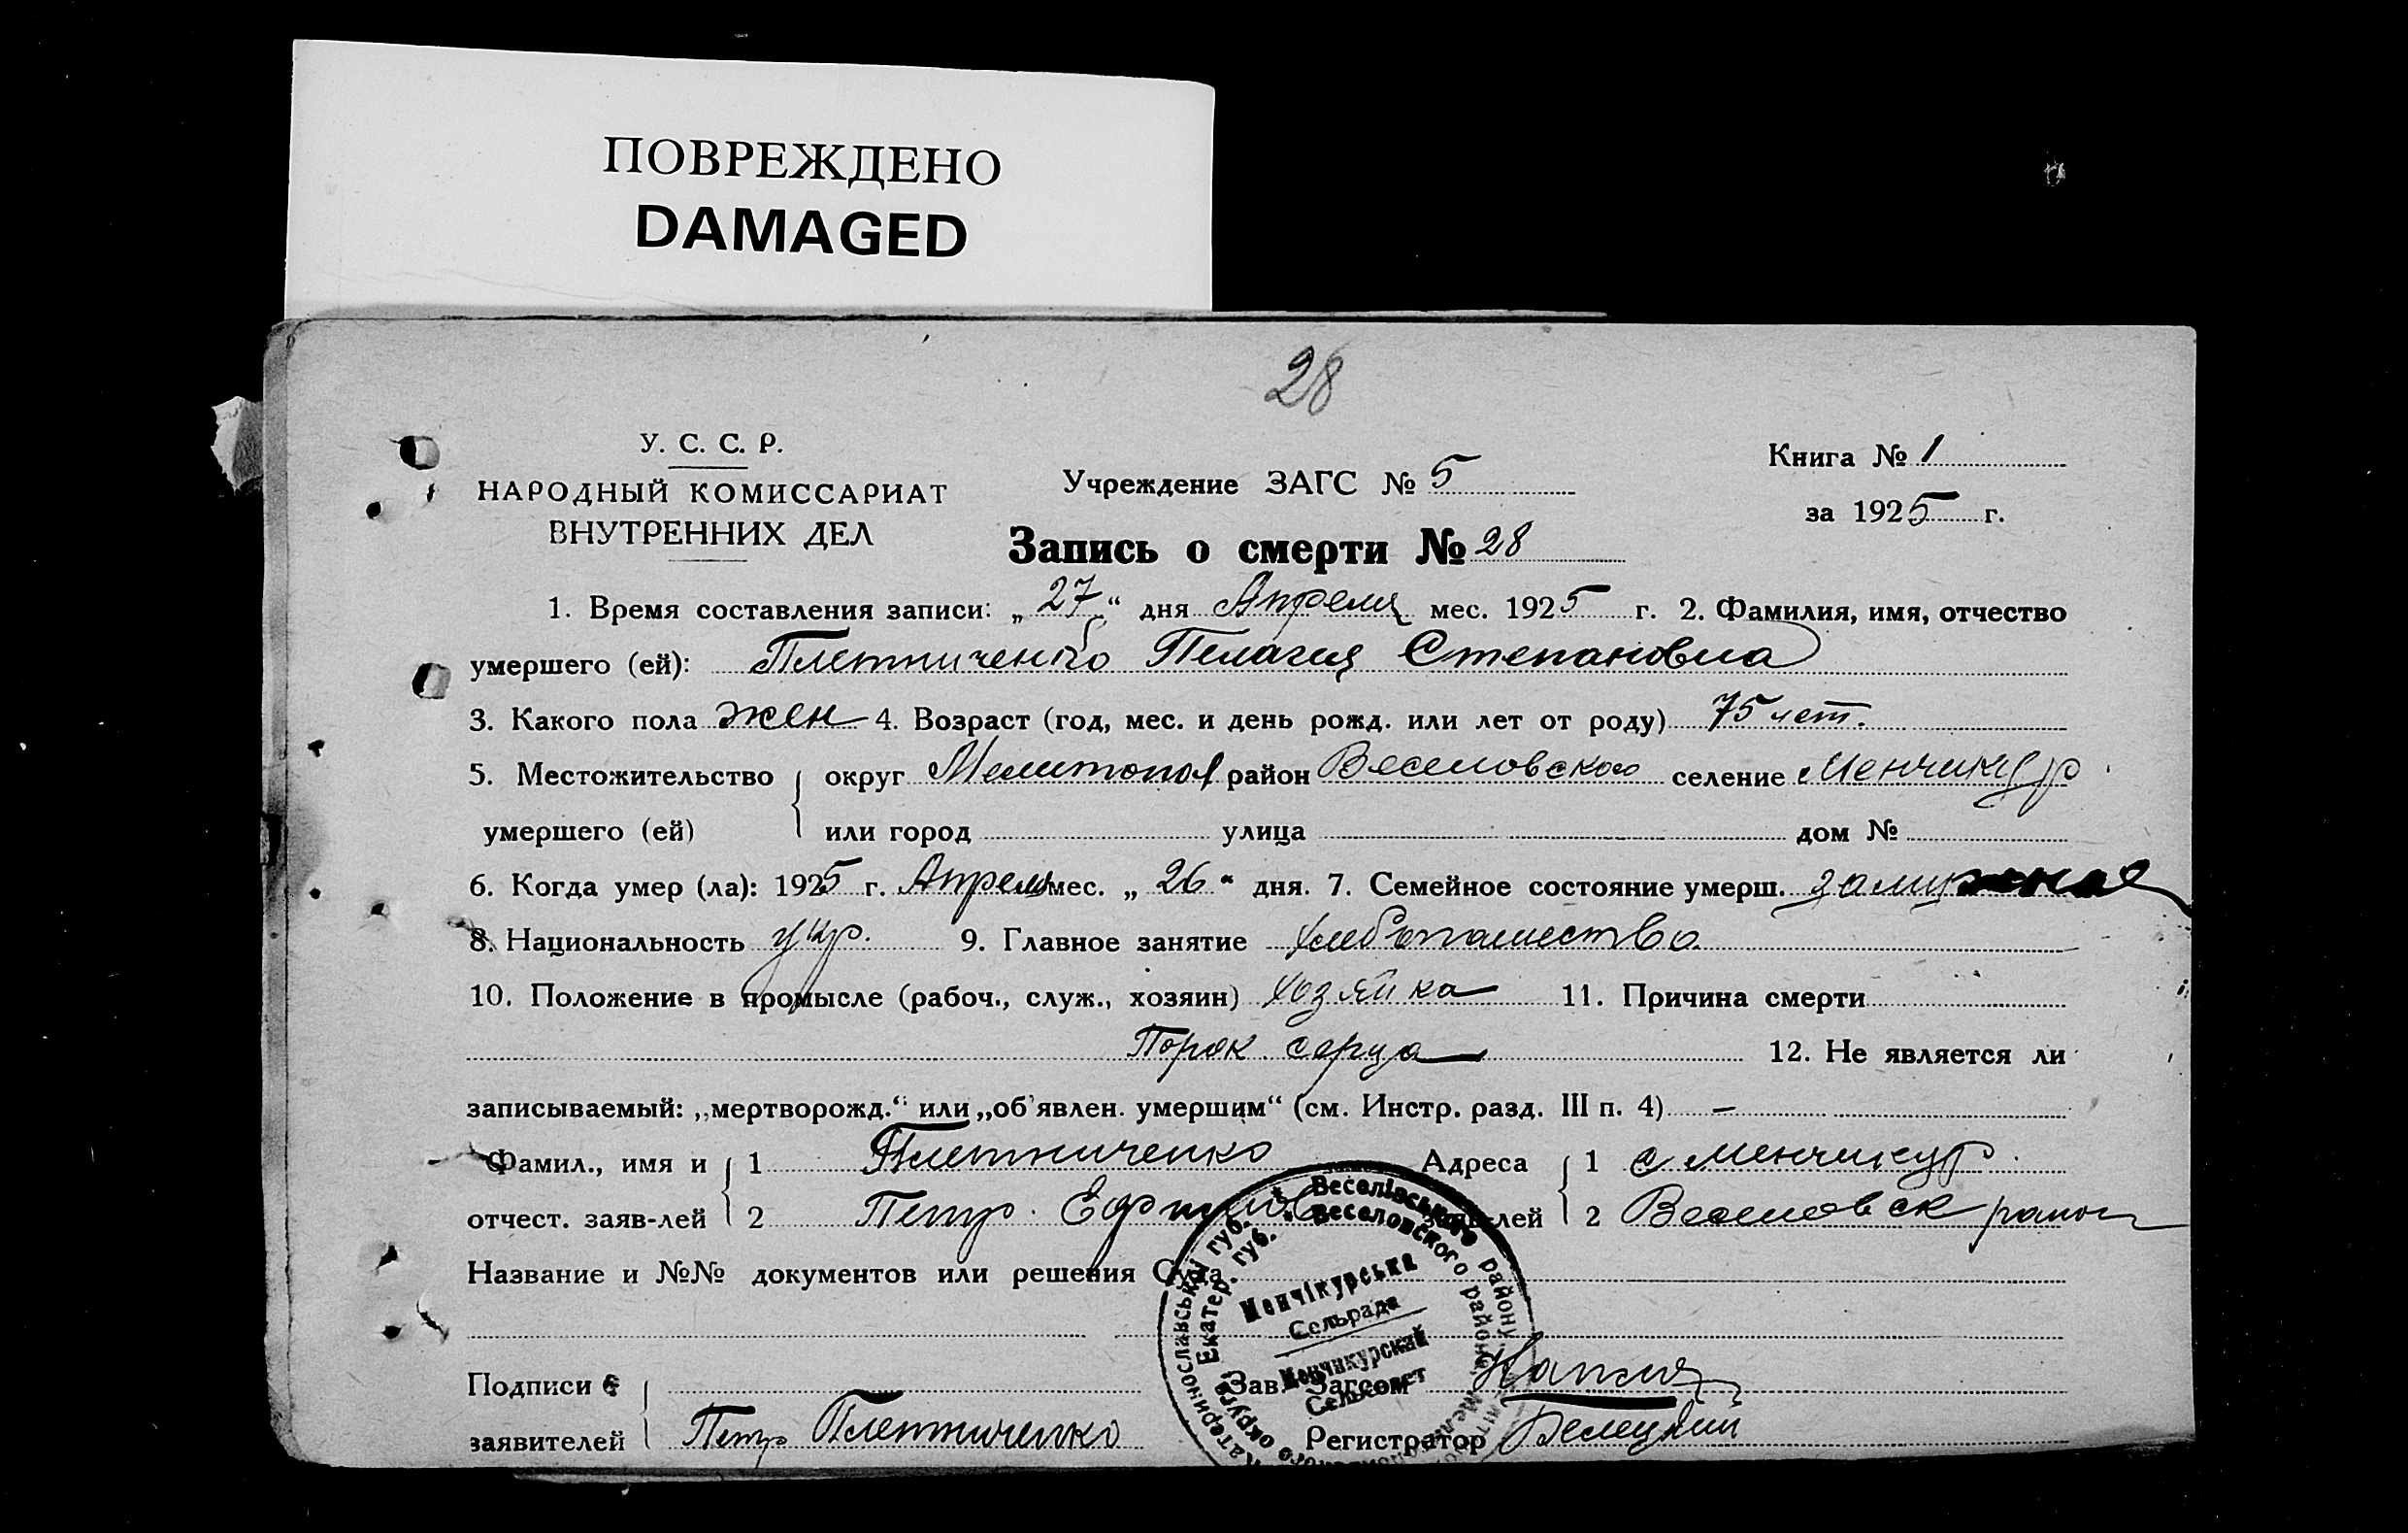 ПОВРЕЖДЕНО
DAMAGED
28
У. С. С. Р.
НАРОДНЫЙ КОМИССАРИАТ
ВНУТРЕННИХ ДЕЛ
Учреждение ЗАГС № 5
Книга № 1
за 1925 г.
Запись о смерти № 28
1. Время составления записи: „27“ дня Апреля мес. 1925 г. 2. Фамилия, имя, отчество
умершего (ей): Плетниченко Пелагия Степановна
3. Какого пола жен 4. Возраст (год, мес. и день рожд. или лет от роду) 75 лет.
5. Местожительство округ Мелитопол район Веселовского селение Менчикур
умершего (ей) или город улица дом №
6. Когда умер (ла): 1925 г. Апреля мес. „26“ дня. 7. Семейное состояние умерш. замужная
8. Национальность укр. 9. Главное занятие хлебопашество
10. Положение в промысле (рабоч., служ., хозяин) хозяйка 11. Причина смерти
Порок серца 12. Не является ли
записываемый: „мертворожд.“ или „об'явлен. умершим“ (см. Инстр. разд. III п. 4) —
Фамил., имя и 1 Плетниченко Адреса 1 с Менчикур.
отчест. заяв-лей 2 Петр. заяв-лей 2 Веселовск район
Название и №№ документов или решения Суда
Подписи Зав. Загсом
заявителей Петр Плетниченко Регистратор Белецкий
Веселівського району
Катеринославської губ.
Веселовского района
Екатер. губ.
Менчікурська
Сельрада
Менчикурский
Сельсовет